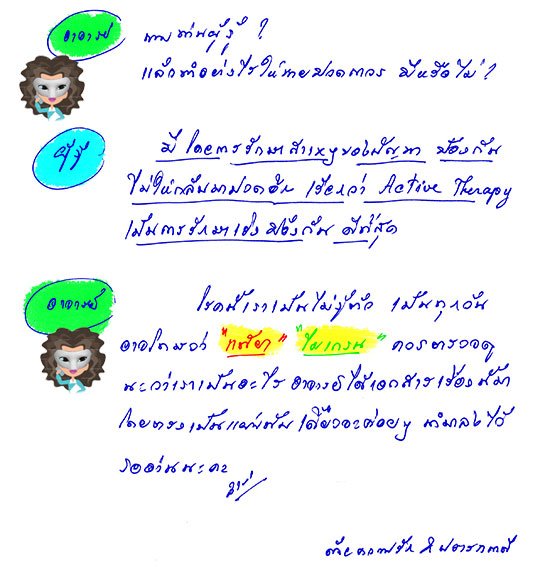 อาจารย์
ถามท่านผู้รู้ ?
แล้วทำอย่างไรให้หายปวดถาวร มีหรือไม่ ?
ผู้รู้
มี โดยการรักษาสาเหตุของปัญหา ป้องกัน
ไม่ให้กลับมาปวดอีก เรียกว่า Active Therapy
เป็นการรักษาเชิงป้องกัน ดีที่สุด
อาจารย์
โรคนี้เราเป็นไม่รู้ตัว เป็นทุกวัน
อาจโดนว่า "แพ้ยา" "ไมเกรน" ควรตรวจดู
นะว่าเราเป็นอะไร อาจารย์ได้เอกสารเรื่องนี้มา
โดยตรงเป็นแผ่นพับ เดี๋ยวจะค่อยๆ นำมาลงไว้
รออ่านนะคะ
ด้วยความรัก